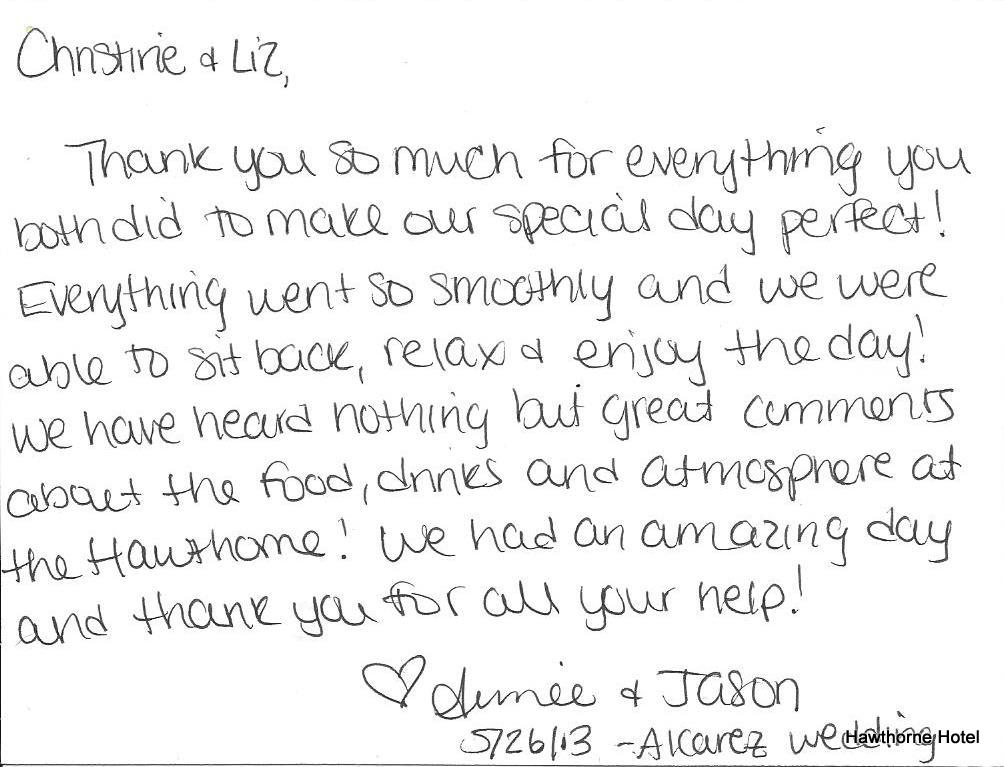 Christine & Liz,
Thank you so much for everything you
both did to make our special day perfect!
Everything went so smoothly and we were
able to sit back, relax & enjoy the day!
we have heard nothing but great comments
about the food, drinks and atmosphere at
the Hawthorne! We had an amazing day
and thank you for all your help!
♡ Aimee & Jason
5/26/13 - Alcarez wedding
Hawthorne Hotel